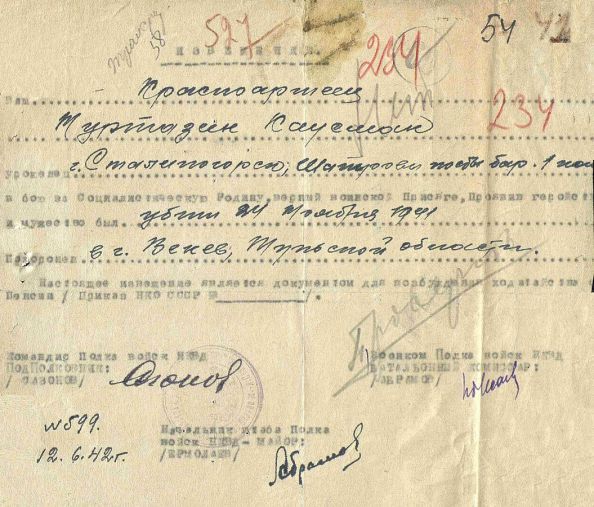 527
54 42
ИЗВЕЩЕНИЕ.
234
Ваш Красноармеец
234
Муртазин Каусман
уроженец г. Сталиногорск, Шатурови бар. 1
в бою за Социалистическую Родину, верный воинской Присяге, Проявив геройство
и мужество был убит 24 ноября 1941
Похоронен в г. Венев, Тульской области.
Настоящее извещение является документом для возбуждения ходатайства о
Пенсии / Приказ НКО СССР № /.
Командир Полка войск НКВД
ПодПолковник:
/ САЗОНОВ/
Военком Полка войск НКВД
БАТАЛЬОННЫЙ КОМИССАР:
/АБРАМОВ/
№599.
12.6.42г.
Начальник Штаба Полка
войск НКВД - МАЙОР:
/ЕРМОЛАЕВ/